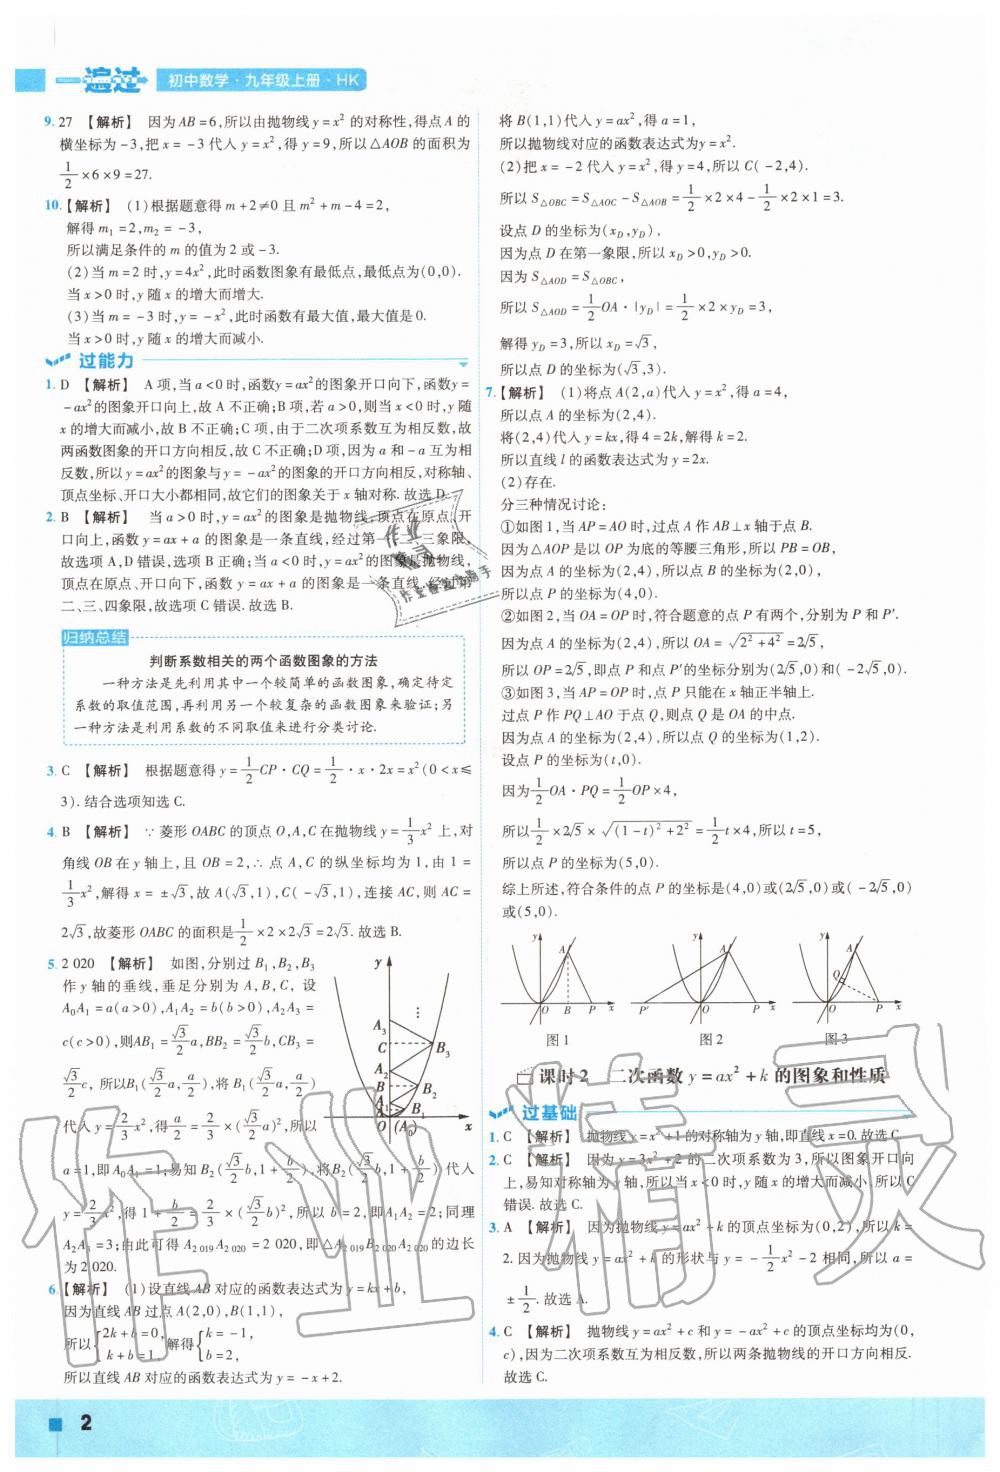 一遍过 初中数学·九年级上册·HK
9. 27 【解析】 因为AB=6,所以由抛物线y=x²的对称性,得点A的
横坐标为-3,把x=-3代入y=x²,得y=9,所以△AOB的面积为
1/2×6×9=27.
10.【解析】 (1)根据题意得m+2≠0且m²+m-4=2,
解得m₁=2,m₂=-3,
所以满足条件的m的值为2或-3.
(2)当m=2时,y=4x²,此时函数图象有最低点,最低点为(0,0).
当x>0时,y随x的增大而增大.
(3)当m=-3时,y=-x²,此时函数有最大值,最大值是0.
当x>0时,y随x的增大而减小.
过能力
1. D 【解析】 A项,当a<0时,函数y=ax²的图象开口向下,函数y=
-ax²的图象开口向上,故A不正确;B项,若a>0,则当x<0时,y随
x的增大而减小,故B不正确;C项,由于二次项系数互为相反数,故
两函数图象的开口方向相反,故C不正确;D项,因为a和-a互为相
反数,所以y=ax²的图象与y=-ax²的图象的开口方向相反,对称轴、
顶点坐标、开口大小都相同,故它们的图象关于x轴对称.故选D.
2. B 【解析】 当a>0时,y=ax²的图象是抛物线,顶点在原点,开
口向上,函数y=ax+a的图象是一条直线,经过第一、二、三象限,
故选项A,D错误,选项B正确;当a<0时,y=ax²的图象是抛物线,
顶点在原点、开口向下,函数y=ax+a的图象是一条直线,经过第
二、三、四象限,故选项C错误.故选B.
归纳总结
判断系数相关的两个函数图象的方法
一种方法是先利用其中一个较简单的函数图象,确定待定
系数的取值范围,再利用另一个较复杂的函数图象来验证;另
一种方法是利用系数的不同取值来进行分类讨论.
3. C 【解析】 根据题意得y=1/2CP·CQ=1/2·x·2x=x²(0<x≤
3).结合选项知选C.
4. B 【解析】 ∵菱形OABC的顶点O,A,C在抛物线y=1/3x²上,对
角线OB在y轴上,且OB=2,∴点A,C的纵坐标均为1,由1=
1/3x²,解得x=±√3,故A(√3,1),C(-√3,1),连接AC,则AC=
2√3,故菱形OABC的面积是1/2×2×2√3=2√3.故选B.
5. 2 020 【解析】 如图,分别过B₁,B₂,B₃
作y轴的垂线,垂足分别为A,B,C,设
A₀A₁=a(a>0),A₁A₂=b(b>0),A₂A₃=
c(c>0),则AB₁=√3/2a,BB₂=√3/2b,CB₃=
√3/2c,所以B₁(√3/2a,a/2),将B₁(√3/2a,a/2)
代入y=2/3x²,得a/2=2/3×(√3/2a)²,所以
a=1,即A₀A₁=1;易知B₂(√3/2b,1+b/2),将B₂(√3/2b,1+b/2)代入
y=2/3x²,得1+b/2=2/3×(√3/2b)²,所以b=2,即A₁A₂=2;同理
A₂A₃=3;由此可得A₂ ₀₁₉A₂ ₀₂₀=2 020,即△A₂ ₀₁₉B₂ ₀₂₀A₂ ₀₂₀的边长
为2 020.
y
A₃
C
A₂
B
A₁
A
B₃
B₂
B₁
⋮
O
(A₀)
x
6.【解析】 (1)设直线AB对应的函数表达式为y=kx+b,
因为直线AB过点A(2,0),B(1,1),
所以{2k+b=0, k+b=1,解得{k=-1, b=2,
所以直线AB对应的函数表达式为y=-x+2.
将B(1,1)代入y=ax²,得a=1,
所以抛物线对应的函数表达式为y=x².
(2)把x=-2代入y=x²,得y=4,所以C(-2,4).
所以S△OBC=S△AOC-S△AOB=1/2×2×4-1/2×2×1=3.
设点D的坐标为(x_D,y_D),
因为点D在第一象限,所以x_D>0,y_D>0.
因为S△AOD=S△OBC,
所以S△AOD=1/2OA·|y_D|=1/2×2×y_D=3,
解得y_D=3,所以x_D=√3,
所以点D的坐标为(√3,3).
7.【解析】 (1)将点A(2,a)代入y=x²,得a=4,
所以点A的坐标为(2,4).
将(2,4)代入y=kx,得4=2k,解得k=2.
所以直线l的函数表达式为y=2x.
(2)存在.
分三种情况讨论:
①如图1,当AP=AO时,过点A作AB⊥x轴于点B.
因为△AOP是以OP为底的等腰三角形,所以PB=OB,
因为点A的坐标为(2,4),所以点B的坐标为(2,0),
所以点P的坐标为(4,0).
②如图2,当OA=OP时,符合题意的点P有两个,分别为P和P′.
因为点A的坐标为(2,4),所以OA=√(2²+4²)=2√5,
所以OP=2√5,即点P和点P′的坐标分别为(2√5,0)和(-2√5,0)
③如图3,当AP=OP时,点P只能在x轴正半轴上.
过点P作PQ⊥AO于点Q,则点Q是OA的中点.
因为点A的坐标为(2,4),所以点Q的坐标为(1,2).
设点P的坐标为(t,0).
因为1/2OA·PQ=1/2OP×4,
所以1/2×2√5×√((1-t)²+2²)=1/2t×4,所以t=5,
所以点P的坐标为(5,0).
综上所述,符合条件的点P的坐标是(4,0)或(2√5,0)或(-2√5,0)
或(5,0).
y A O B P x
y A P′ O P x
y A Q O P x
图1 图2 图3
课时2 二次函数y=ax²+k的图象和性质
过基础
1. C 【解析】 抛物线y=x²+1的对称轴为y轴,即直线x=0.故选C.
2. C 【解析】 因为y=3x²+2的二次项系数为3,所以图象开口向
上,易知对称轴为y轴,所以当x<0时,y随x的增大而减小.所以C
错误.故选C.
3. A 【解析】 因为抛物线y=ax²+k的顶点坐标为(0,2),所以k=
2.因为抛物线y=ax²+k的形状与y=-1/2x²-2相同,所以a=
±1/2.故选A.
4. C 【解析】 抛物线y=ax²+c和y=-ax²+c的顶点坐标均为(0,
c),因为二次项系数互为相反数,所以两条抛物线的开口方向相反.
故选C.
2
作业精灵